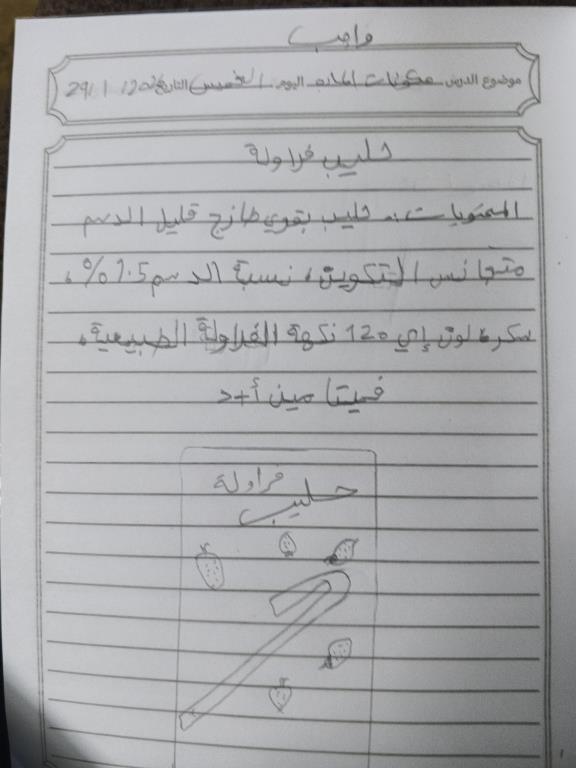 واجب
موضوع الدرس مكونات المادة اليوم الخميس التاريخ 29/1/120
حليب فراولة
المحتويات :- حليب بقري طازج قليل الدسم
متجانس التكوين، نسبة الدسم 1.5%،
سكر، لون إي 120 نكهة الفراولة الطبيعية،
فيتا مين أ+د
فراولة
حليب